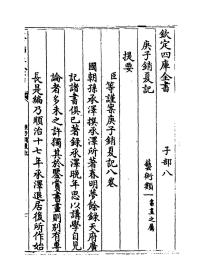 欽定四庫全書
子部八
庚子銷夏記
藝術類一書畫之屬
提要
臣等謹案庚子銷夏記八卷
國朝孫承澤撰承澤所著春明夢餘錄天府廣
記諸書俱已著錄承澤晚年思以講學自見
論者多未之許獨其於鑒賞書畫則別有專
長是編乃順治十七年承澤退居後所作始